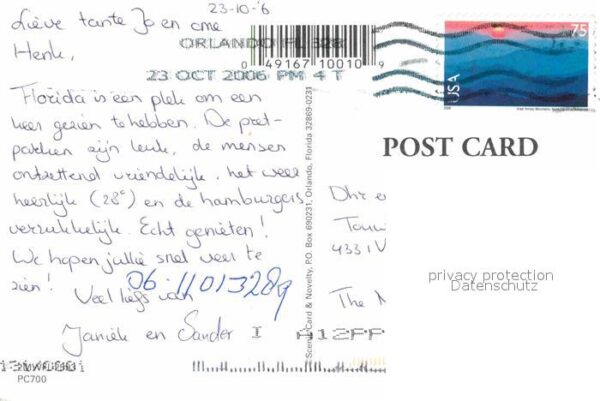 23-10-'6
Lieve tante Jo en ome
Henk,
Florida is een plek om een
keer gezien te hebben. De pret-
parken zijn leuk, de mensen
ontzettend vriendelijk, het weer
heerlijk (28°) en de hamburgers
verrukkelijk. Echt genieten!
We hopen jullie snel weer te
zien!
Veel liefs van
Janiek en Sander
06-11013289
ORLANDO FL 328
23 OCT 2006 PM 4 T
0 49167 10010 9
75
USA
POST CARD
Scenic Card & Novelty, P.O. Box 690231, Orlando, Florida 32869-0231
Dhr e
4331V
The N
privacy protection
Datenschutz
I A12PP
PC700